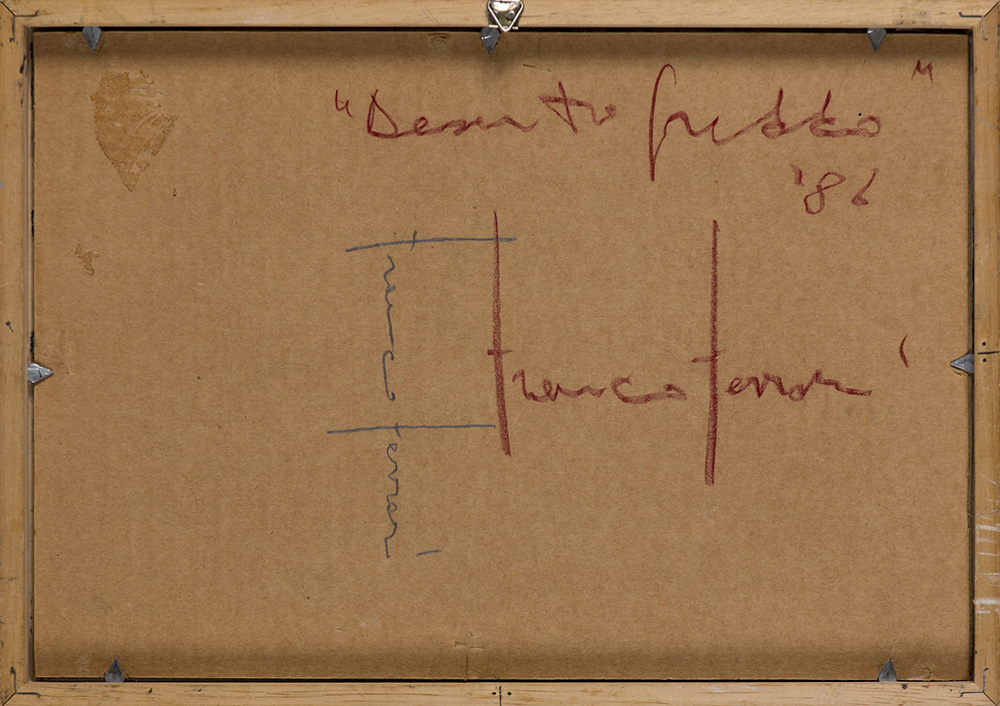 "Deserto freddo"
'86
franco ferrari
franco ferrari